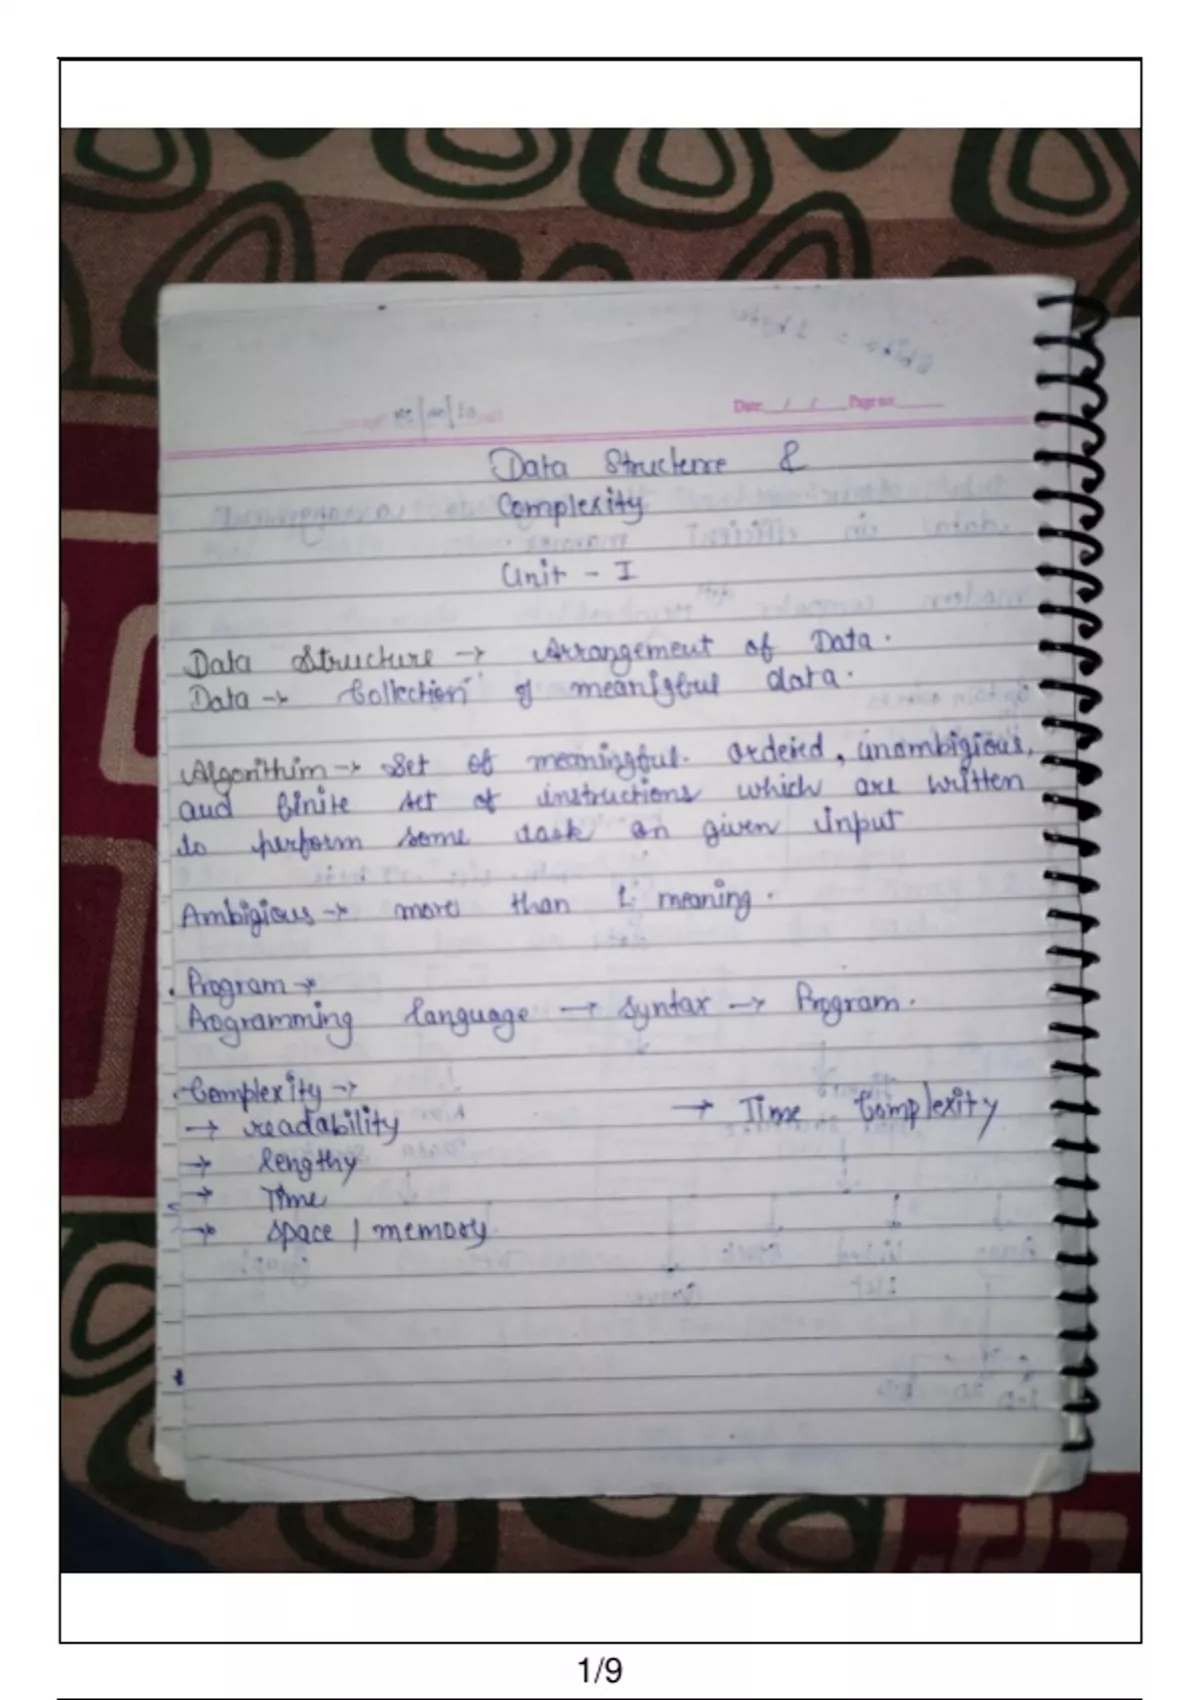 Date / / Page no
Data Structure &
Complexity
Unit - I
Data Structure → Arrangement of Data.
Data → Collection of meaningful data.
Algorithim → Set of meaningful. ordered, unambigious,
and finite set of instructions which are written
to perform some task on given input
Ambigious → more than 1 meaning.
. Program →
Programming language → syntax → Program.
. Complexity →
→ readability → Time Complexity
→ lengthy
→ Time
→ space / memory
1/9